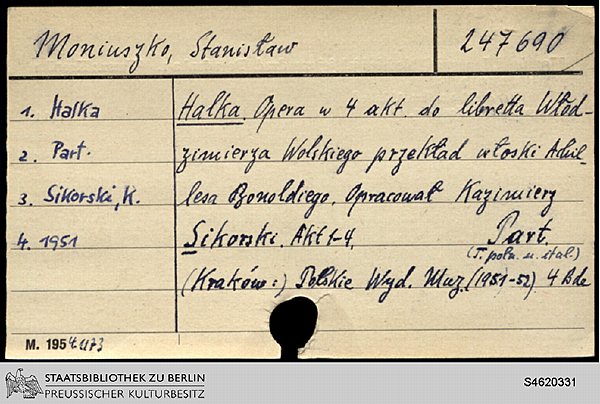 Moniuszko, Stanisław
247690
1. Halka
2. Part.
3. Sikorski, K.
4. 1951
Halka. Opera w 4 akt. do libretta Włod-
zimierza Wolskiego przekład włoski Achil-
lesa Bonoldiego. Opracował Kazimierz
Sikorski. Akt 1-4. Part.
(T. poln. u. ital.)
(Kraków:) Polskie Wyd. Muz. (1951-52) 4 Bde
M. 1954.
STAATSBIBLIOTHEK ZU BERLIN
PREUSSISCHER KULTURBESITZ
S4620331